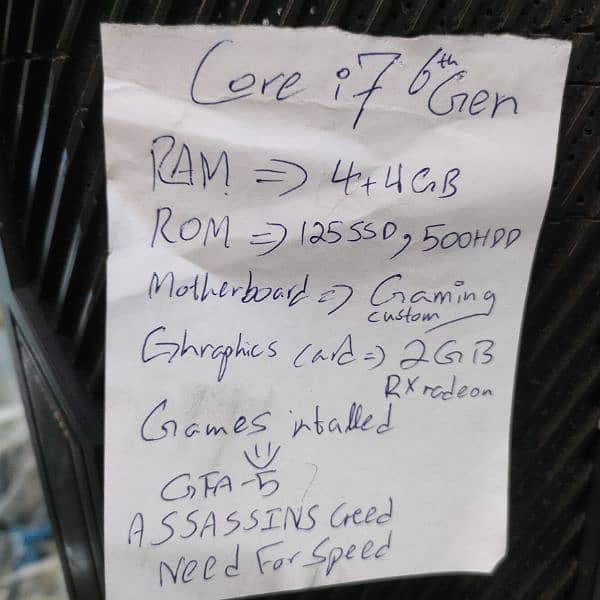 Core i7 6th Gen
RAM => 4+4GB
ROM => 125SSD, 500HDD
Motherboard => Gaming
custom
Ghraphics Card => 2GB
RX radeon
Games intalled
GTA-5
ASSASSINS Creed
Need For Speed